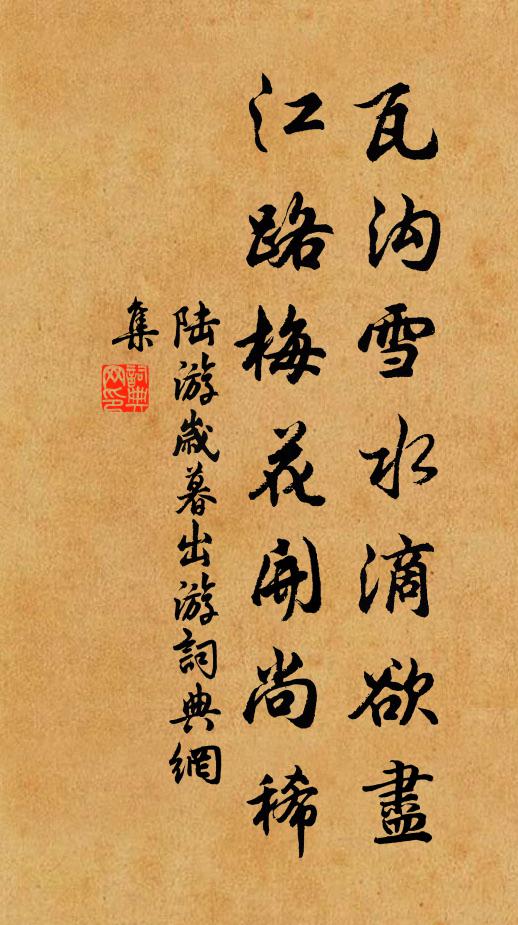 瓦沟雪水滴欲盡
江路梅花開尚稀
陆游歲暮出游詞典網
集
詞典网印